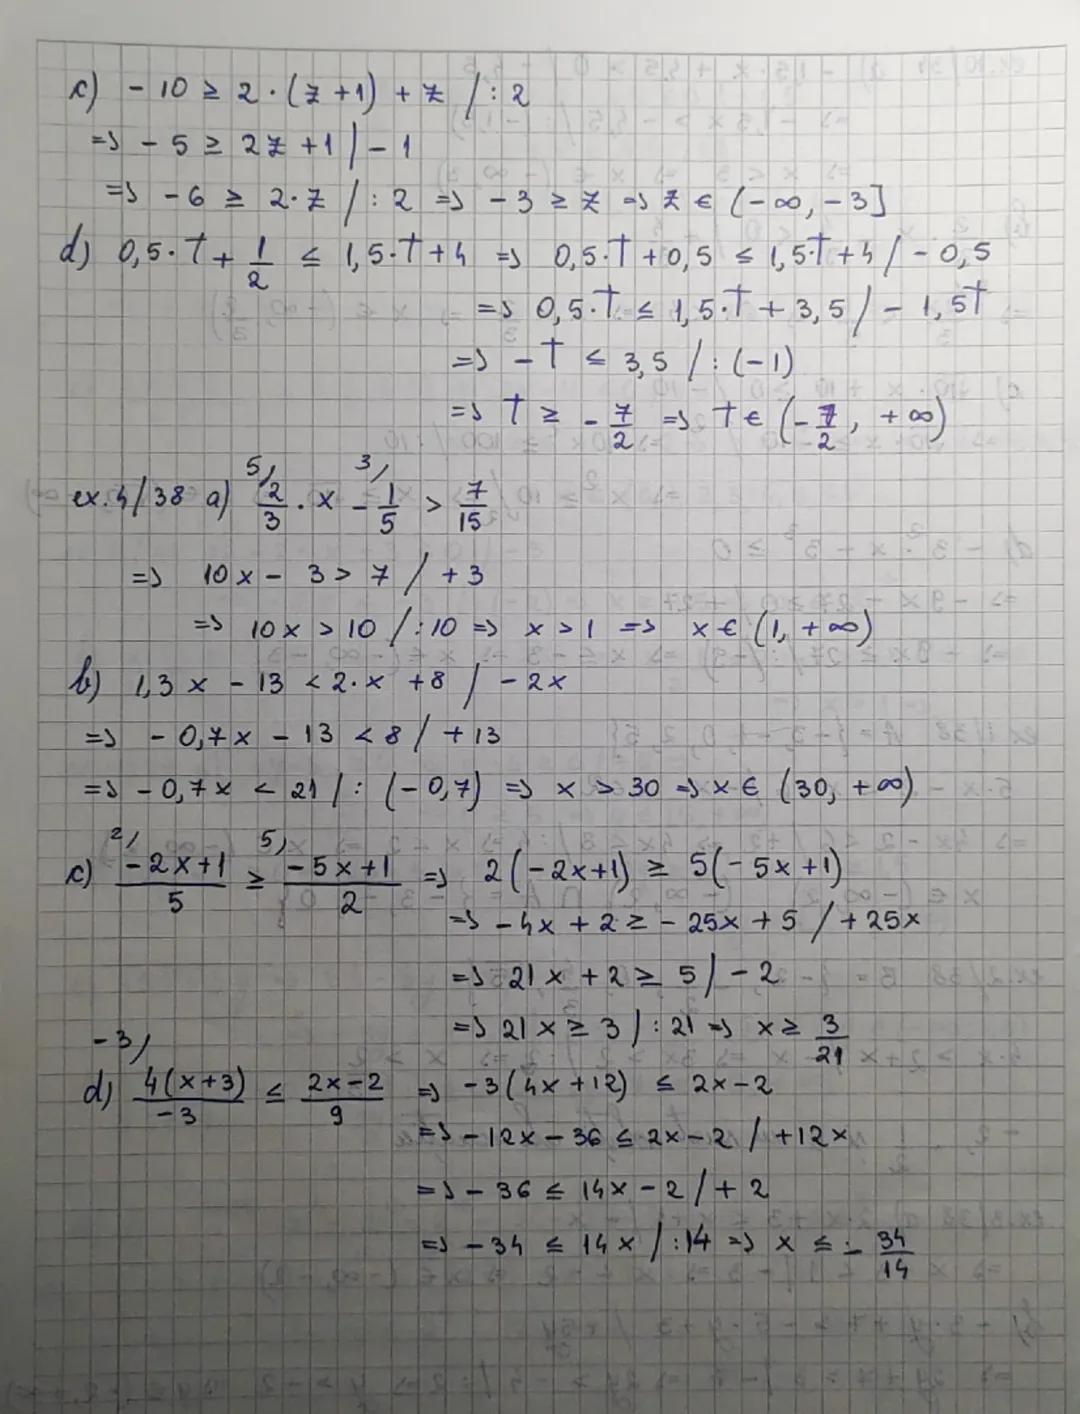 c) - 10 ≥ 2 · (z + 1) + z / : 2
=> - 5 ≥ 2z + 1 | - 1
=> - 6 ≥ 2 · z / : 2 => - 3 ≥ z => z ∈ (-∞, -3]
d) 0,5 · t + 1/2 ≤ 1,5 · t + 4 => 0,5 · t + 0,5 ≤ 1,5 · t + 4 / - 0,5
=> 0,5 · t ≤ 1,5 · t + 3,5 / - 1,5t
=> - t ≤ 3,5 / : (-1)
=> t ≥ - 7/2 => t ∈ (- 7/2, +∞)
ex. 4/38 a) 5/ 2/3 · x - 3/ 1/5 > 7/15
=> 10x - 3 > 7 / + 3
=> 10x > 10 / : 10 => x > 1 => x ∈ (1, +∞)
b) 1,3x - 13 < 2 · x + 8 / - 2x
=> - 0,7x - 13 < 8 / + 13
=> - 0,7x < 21 / : (- 0,7) => x > 30 => x ∈ (30, +∞)
c) 2/ (-2x+1)/5 ≥ 5/ (-5x+1)/2 => 2(-2x+1) ≥ 5(-5x+1)
=> - 4x + 2 ≥ - 25x + 5 / + 25x
=> 21x + 2 ≥ 5 / - 2
=> 21x ≥ 3 / : 21 => x ≥ 3/21
d) -3/ 4(x+3)/-3 ≤ (2x-2)/9 => -3(4x+12) ≤ 2x-2
=> - 12x - 36 ≤ 2x - 2 / + 12x
=> - 36 ≤ 14x - 2 / + 2
=> - 34 ≤ 14x / : 14 => x ≤ - 34/14